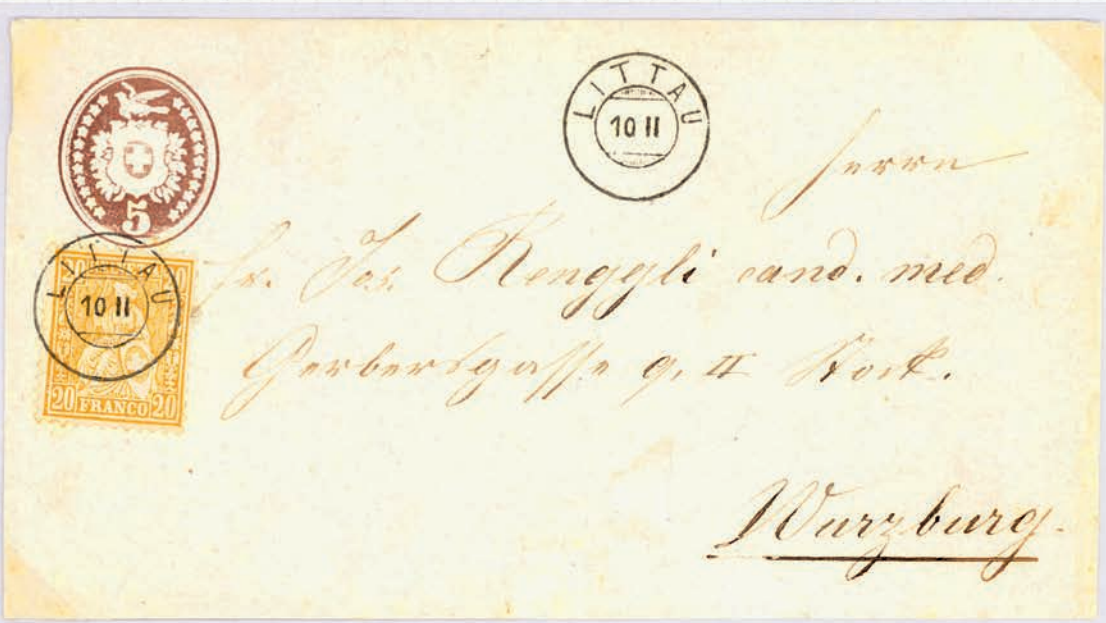 5
LITTAU
10 II
LITTAU
10 II
20 FRANCO 20
Herrn
Jos. Renggli cand. med.
Gerbersgasse 9, II Stock.
Wurzburg.